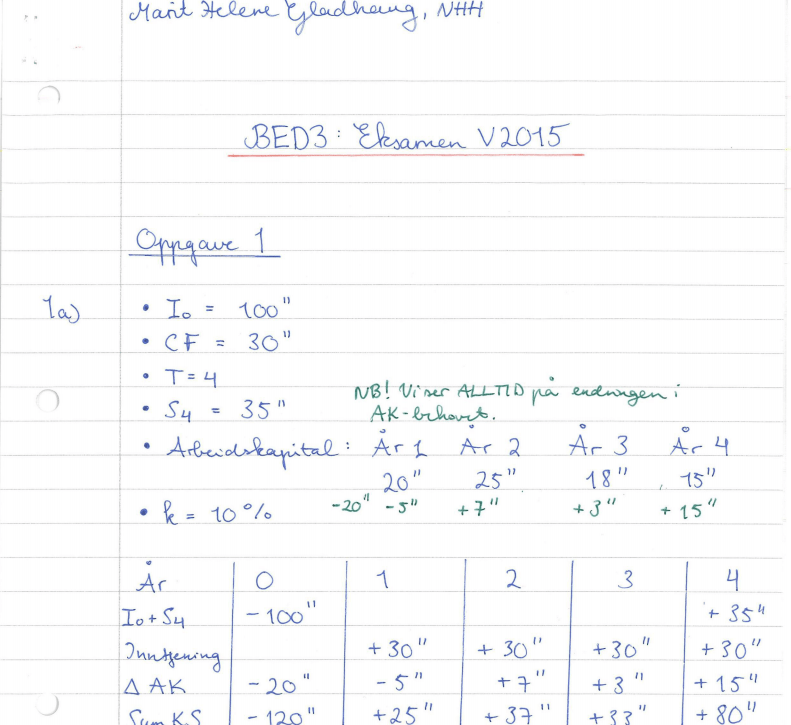 Marit Helene Gladhaug, NHH
BED3: Eksamen V2015
Oppgave 1
1a) • I₀ = 100"
• CF = 30"
• T = 4
• S₄ = 35"
NB! Vi ser ALLTID på endringen i
AK-behovet.
• Arbeidskapital: År 1 År 2 År 3 År 4
20" 25" 18" 15"
• k = 10% -20" -5" +7" +3" +15"
År 0 1 2 3 4
I₀+S₄ -100" +35"
Inntjening +30" +30" +30" +30"
Δ AK -20" -5" +7" +3" +15"
Sum KS -120" +25" +37" +33" +80"